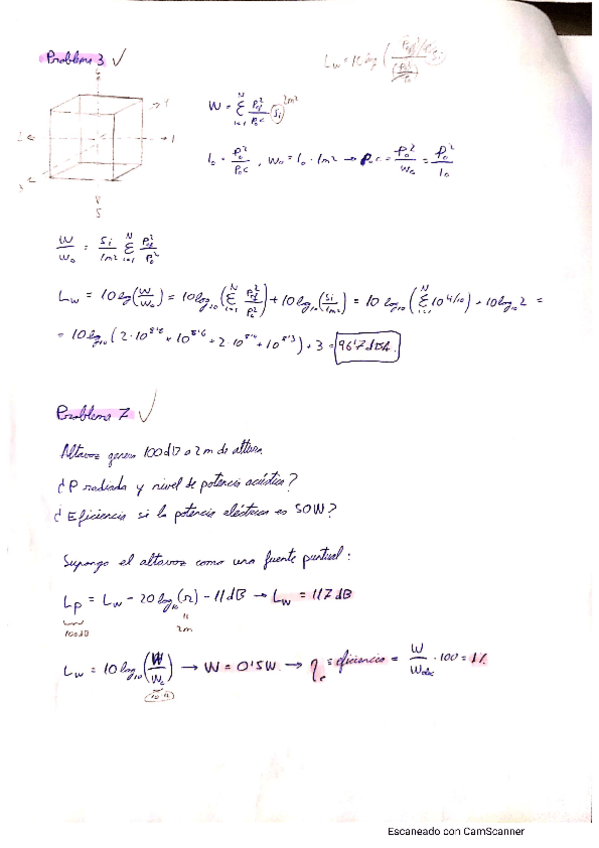 Problema 3 ✓
W = Σ_{i=1}^{N} P_{ef}^2/ρ_o c (S_i) 2m²
I_o = P_o²/ρ_o c , W_o = I_o · 1m² → ρ_o c = P_o²/W_o = P_o²/I_o
W/W_o = S_i/1m² Σ_{i=1}^{N} P_{ef}²/P_o²
L_w = 10 log(W/W_o) = 10 log_10 (Σ_{i=1}^{N} P_{ef}²/P_o²) + 10 log_10 (S_i/1m²) = 10 log_10 (Σ_{i=1}^{N} 10^{Li/10}) + 10 log_10 2 =
= 10 log_10 (2·10^{8'8} + 10^{8'6} + 2·10^{8'4} + 10^{8'3}) + 3 = 96'7 dBA.
Problema 7 ✓
Altavoz genera 100dB a 2m de altura.
¿P radiada y nivel de potencia acústica?
¿Eficiencia si la potencia eléctrica es 50W?
Supongo el altavoz como una fuente puntual:
L_p = L_w - 20 log_10 (r) - 11dB → L_w = 117 dB
100dB 2m
L_w = 10 log_10 (W/W_o) → W = 0'5W → η = eficiencia = W/W_elec · 100 = 1%
Escaneado con CamScanner